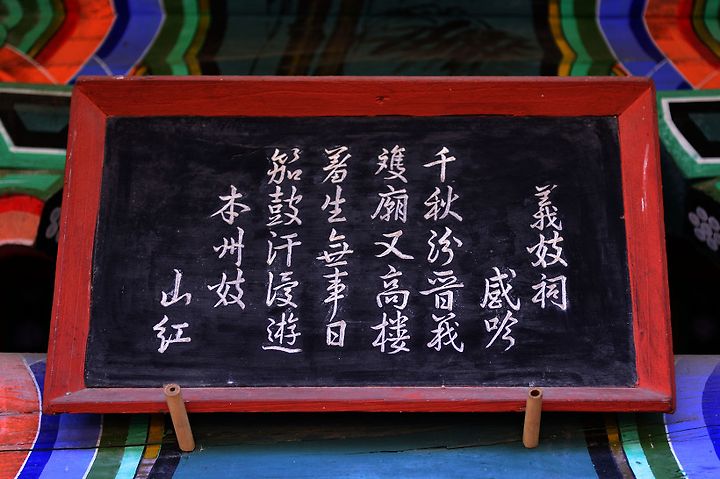 義妓祠
感吟
千秋汾晋義
雙廟又高楼
羞生無事日
笳鼓汗漫遊
本州妓
山红